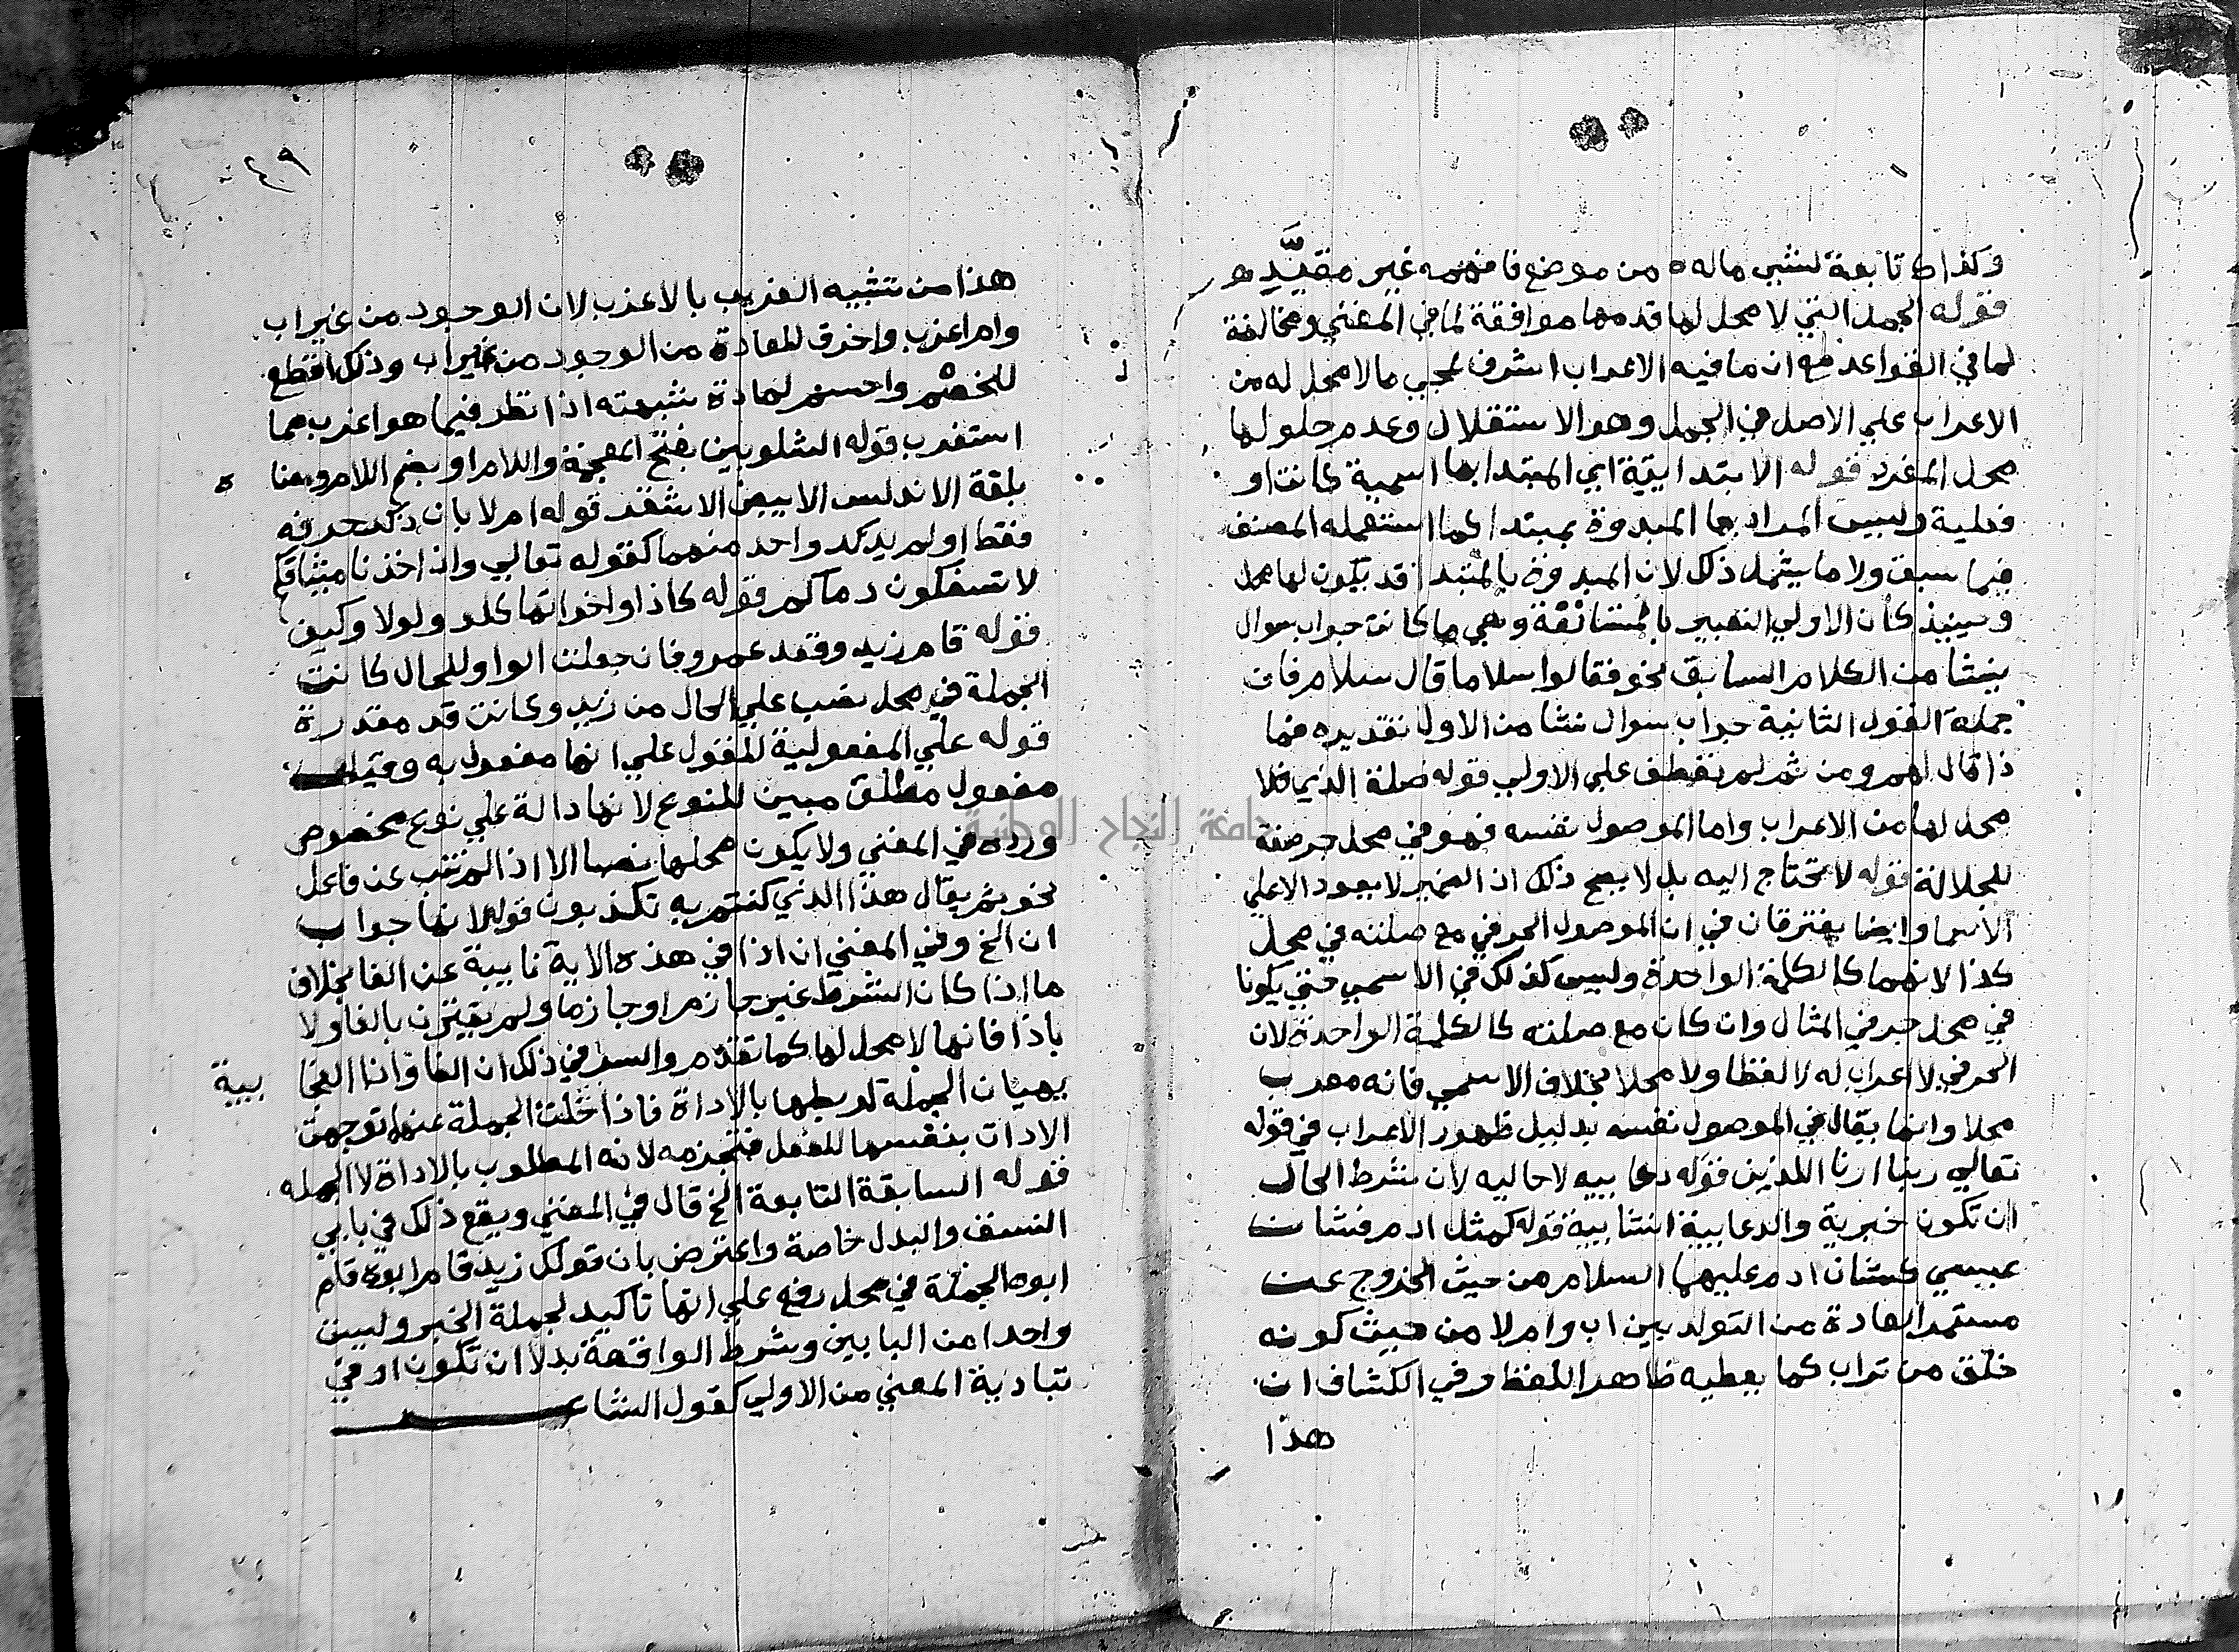 وكذا كل تابعة لشي ماله من موضع فافهمه غير مقيد
قوله الجمل التي لا محل لها قدمها موافقة لما في المغني ومخالفة
لما في القواعد مع ان ما فيه الاعراب اشرف لمجي مالا محل له من
الاعراب علي الاصل في الجمل وهو الاستقلال وعدم حلولها
محل المفرد قوله الابتدايية اي المبتدا بها اسمية كانت او
فعلية وليس المراد بها المبدوة بمبتدا كما استعمله المصنف
فيما سبق ولا ما يشمل ذلك لان المبدوة بالمبتدا قد يكون لها محل
وحينيذ كان الاولي التعبير بالمستانفة وهي ما كانت جواب سوال
ينشا من الكلام السابق نحو فقالوا سلاما قال سلام فان
جملة القول الثانية جواب سوال نشا من الاول تقديره فما
ذا قال لهم ومن ثم لم تعطف علي الاولي قوله صلة الذي فلا
محل لها من الاعراب واما الموصول نفسه فهو في محل جر صفة
للجلالة قوله لا تحتاج اليه بل لا يصح ذلك اذ الضمير لا يعود الا علي
الاسما وايضا يفترقان في ان الموصول الحرفي مع صلته في محل
كذا لانهما كالكلمة الواحدة وليس كذلك في الاسمي حتي يكونا
في محل جر في المثال وان كان مع صلته كالكلمة الواحدة لان
الحرفي لا اعراب له لا لفظا ولا محلا بخلاف الاسمي فانه معرب
محلا وانما يقال في الموصول نفسه بدليل ظهور الاعراب في قوله
تعالي ربنا ارنا اللذين قوله دعاييه لا حاليه لان شرط الحال
ان تكون خبرية والدعايية انشايية قوله كمثل ادم فشان
عيسي كشان ادم عليهما السلام من حيث الخروج عن
مستمر العادة من التولد بين اب وام لا من حيث كونه
خلق من تراب كما يعطيه ظاهر اللفظ وفي الكشاف ان
هذا
٤٩
هذا من تشبيه الغريب بالاغرب لان الوجود من غير اب
وام اغرب واخرق للعادة من الوجود من غير اب وذلك اقطع
للخصم واحسم لمادة شبهته اذا نظر فيما هو اغرب مما
استغرب قوله الشلوبين بفتح المعجمة واللام او بضم اللام ومعنا ه
بلغة الاندلس الابيض الاشقر قوله ام لا بان ذكر حرفه
فقط او لم يذكر واحد منهما كقوله تعالي واذ اخذنا ميثاقكم
لا تسفكون دماكم قوله كاذا واخواتها كلو ولولا وكيف
قوله قام زيد وقعد عمرو فان جعلت الواو للحال كانت
الجملة في محل نصب علي الحال من زيد وكانت قد مقدرة
قوله علي المفعولية للقول علي انها مفعول به وقيل
مفعول مطلق مبين للنوع لانها دالة علي نوع مخصوص
ورده في المغني ولا يكون محلها نصبا الا اذا لم تنب عن فاعل
نحو ثم يقال هذا الذي كنتم به تكذبون قوله لانها جواب
ان الخ وفي المغني ان اذا في هذه الاية نايبة عن الفا بخلاف
ما اذا كان الشرط غير جازم او جازما ولم يقترن بالفا ولا
باذا فانها لا محل لها كما تقدم والسر في ذلك ان الفا واذا الفجا يية
يهيان الجملة لربطها بالاداة فاذا خلت الجملة عنها توجهت
الادات بنفسها للفعل فتجزمه لانه المطلوب بالاداة لا الجمله
قوله السابقة التابعة الخ قال في المغني ويقع ذلك في بابي
النسق والبدل خاصة واعترض بان قولك زيد قام ابوه قام
ابوه الجملة في محل رفع علي انها تاكيد لجملة الخبر وليست
واحدا من البابين وشرط الواقعة بدلا ان تكون اوفي
تبادية المعني من الاولي كقول الشاعر